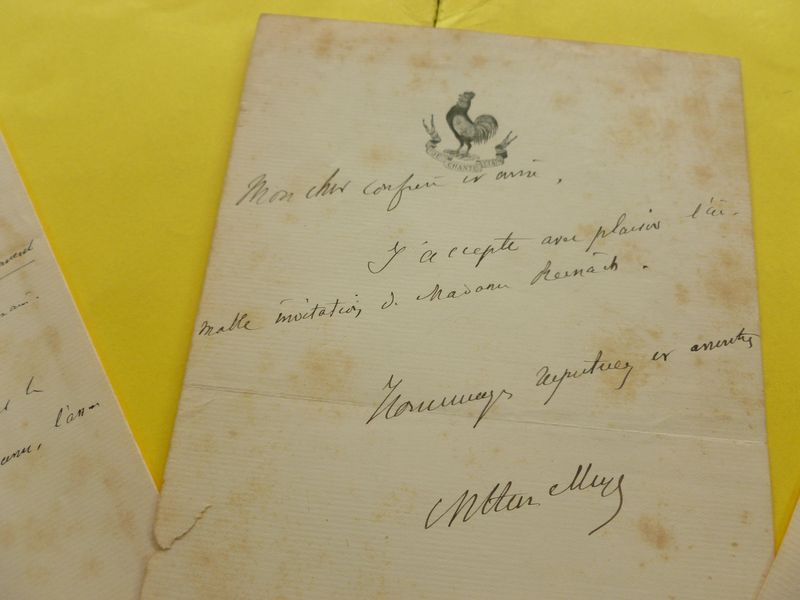 CHANTE
Mon cher confrère et ami,
J'accepte avec plaisir l'ai-
mable invitation de Madame Reinach.
Hommages respectueux et
Arthur Meyer
l'ass